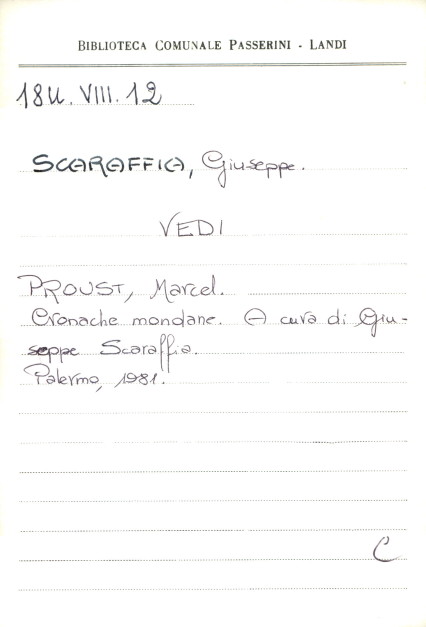 BIBLIOTECA COMUNALE PASSERINI - LANDI
18U. VIII. 12
SCARAFFIA, Giuseppe.
VEDI
PROUST, Marcel.
Cronache mondane. A cura di Giu-
seppe Scaraffia.
Palermo, 1981.
C